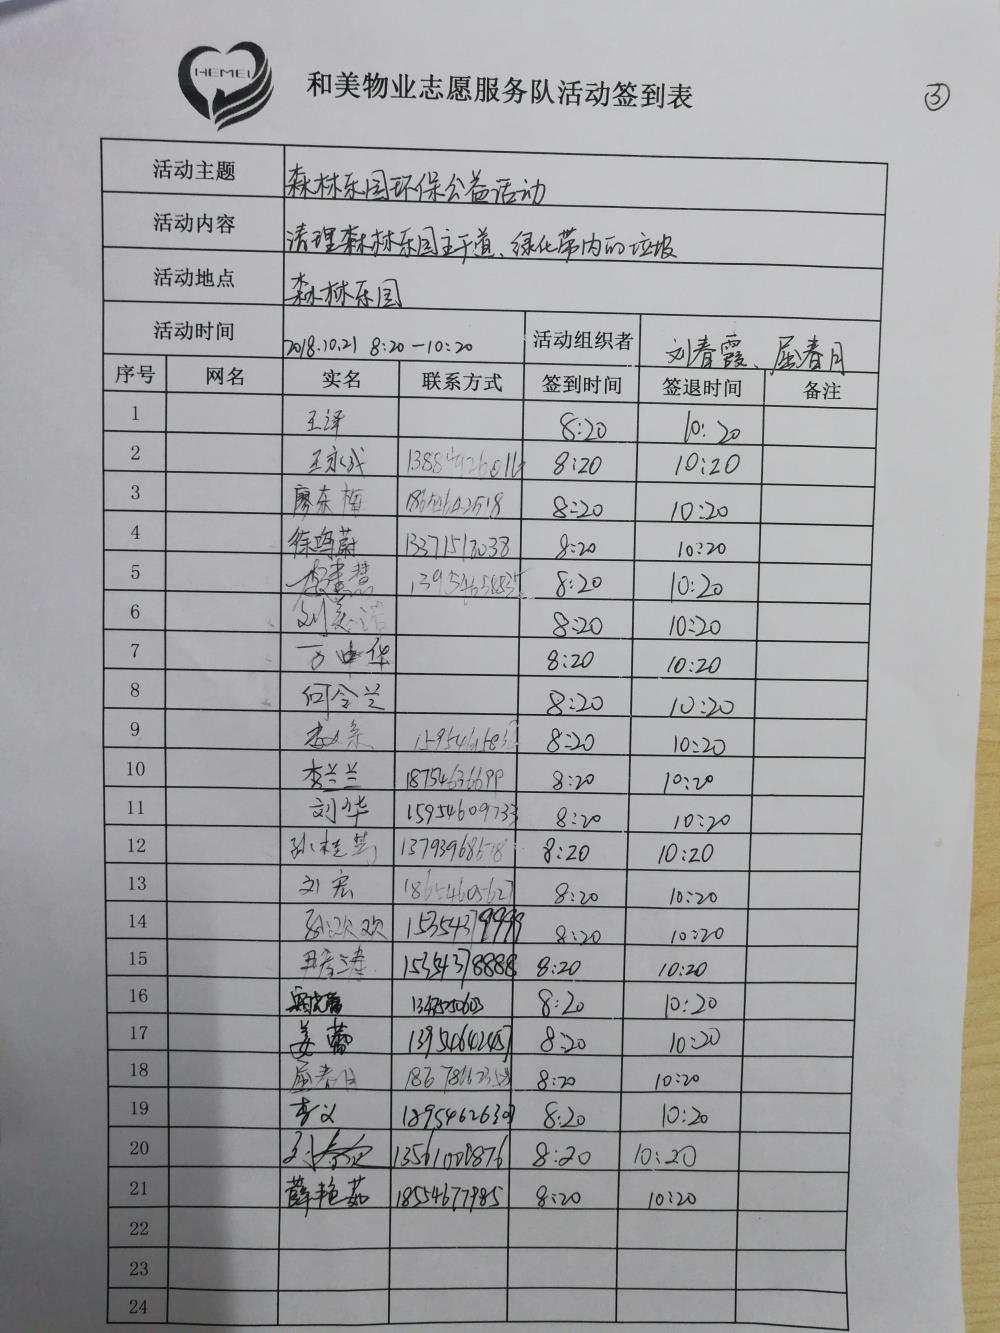 HEMEI
和美物业志愿服务队活动签到表
③
活动主题 森林乐园环保公益活动
活动内容 清理森林乐园主干道、绿化带内的垃圾
活动地点 森林乐园
活动时间 2018.10.21 8:20-10:20 活动组织者 刘春霞、屈春月
序号 网名 实名 联系方式 签到时间 签退时间 备注
1 王泽 8:20 10:20
2 王永成 8:20 10:20
3 廖东梅 8:20 10:20
4 徐鸣蔚 13371513038 8:20 10:20
5 8:20 10:20
6 8:20 10:20
7 万中华 8:20 10:20
8 何令兰 8:20 10:20
9 8:20 10:20
10 李兰兰 18754636699 8:20 10:20
11 刘华 15954609733 8:20 10:20
12 8:20 10:20
13 刘宏 18654605627 8:20 10:20
14 孙欢欢 15354379999 8:20 10:20
15 15354378888 8:20 10:20
16 8:20 10:20
17 姜蕾 13954642457 8:20 10:20
18 屈春月 8:20 10:20
19 李义 8:20 10:20
20 8:20 10:20
21 薛艳茹 18554677985 8:20 10:20
22
23
24